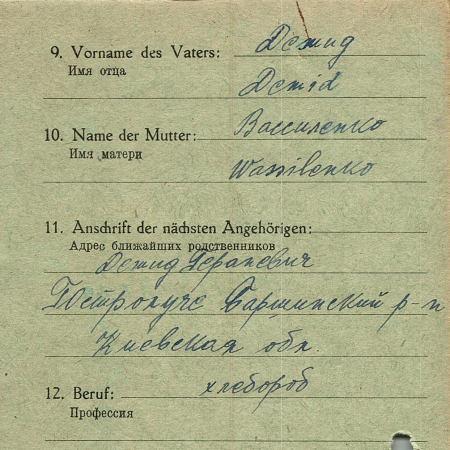 9. Vorname des Vaters: Демид
Имя отца
Demid
10. Name der Mutter: Василенко
Имя матери
Wassilenko
11. Anschrift der nächsten Angehörigen:
Адрес ближайших родственников
Демид
р-н
Киевская обл.
12. Beruf: хлебороб
Профессия